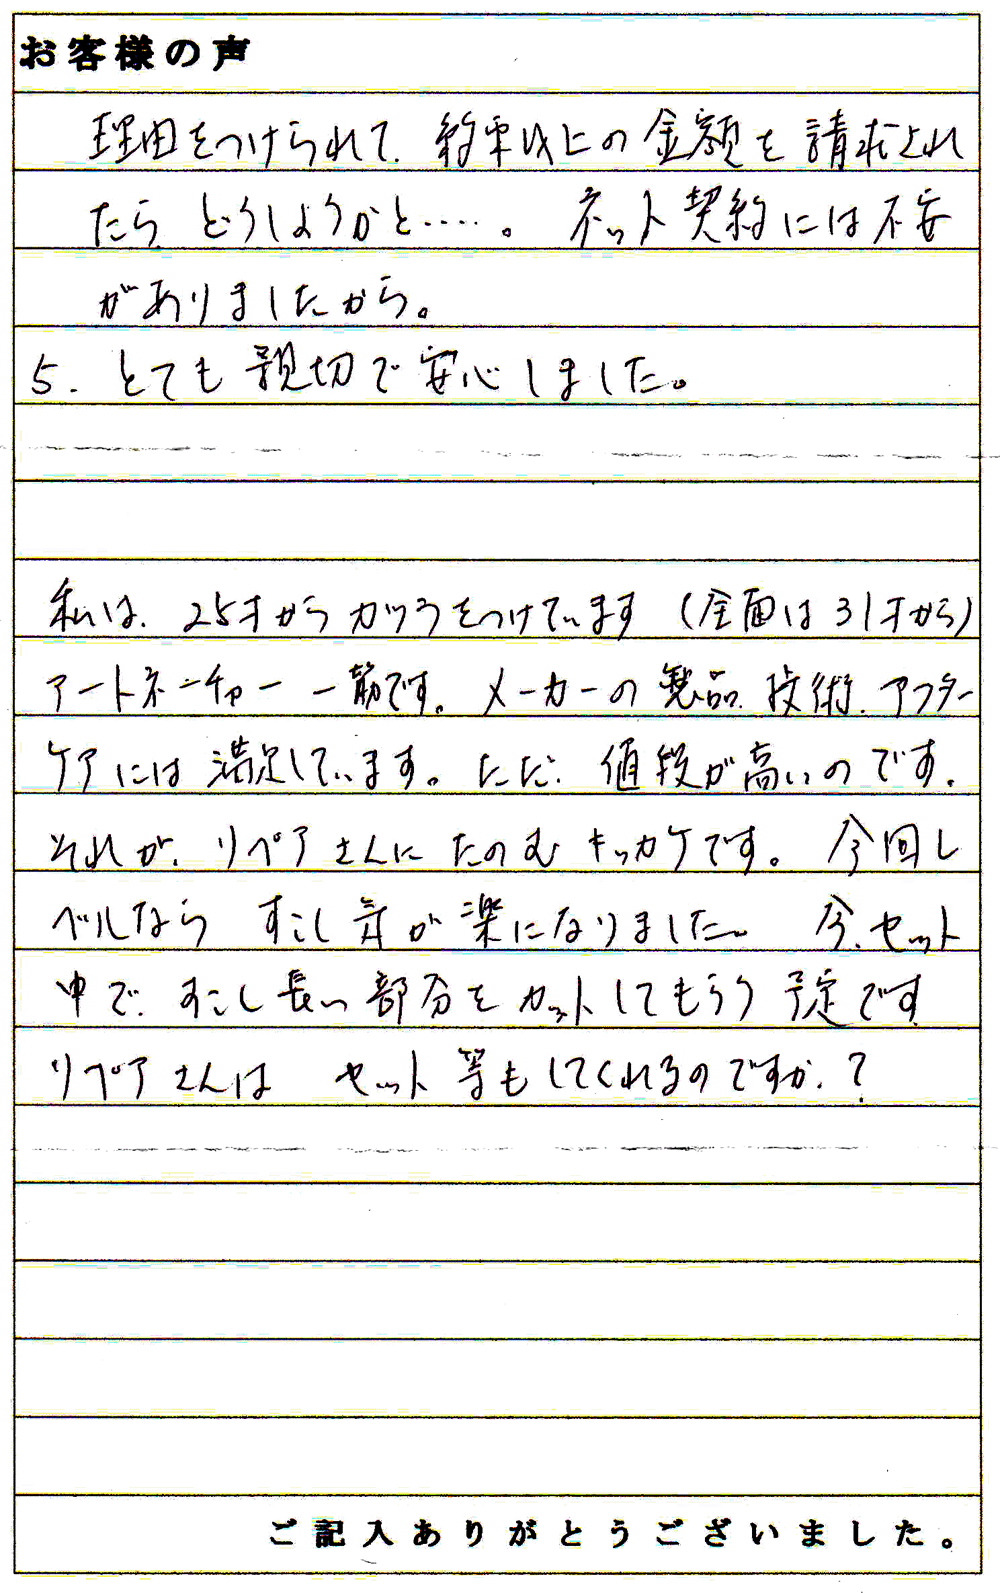 お客様の声
理由をつけられて、約束以上の金額を請求され
たら どうしようかと……。 ネット契約には不安
がありましたから。
5. とても親切で安心しました。
私は、25才からカツラをつけています(全面は31才から)
アートネーチャー 一筋です。メーカーの製品、技術、アフター
ケアには満足しています。ただ、値段が高いのです。
それが、リペアさんにたのむキッカケです。今回レ
ベルなら すこし気が楽になりました。 今、セット
中で、すこし長い部分をカットしてもらう予定です
リペアさんは セット等もしてくれるのですか?
ご記入ありがとうございました。